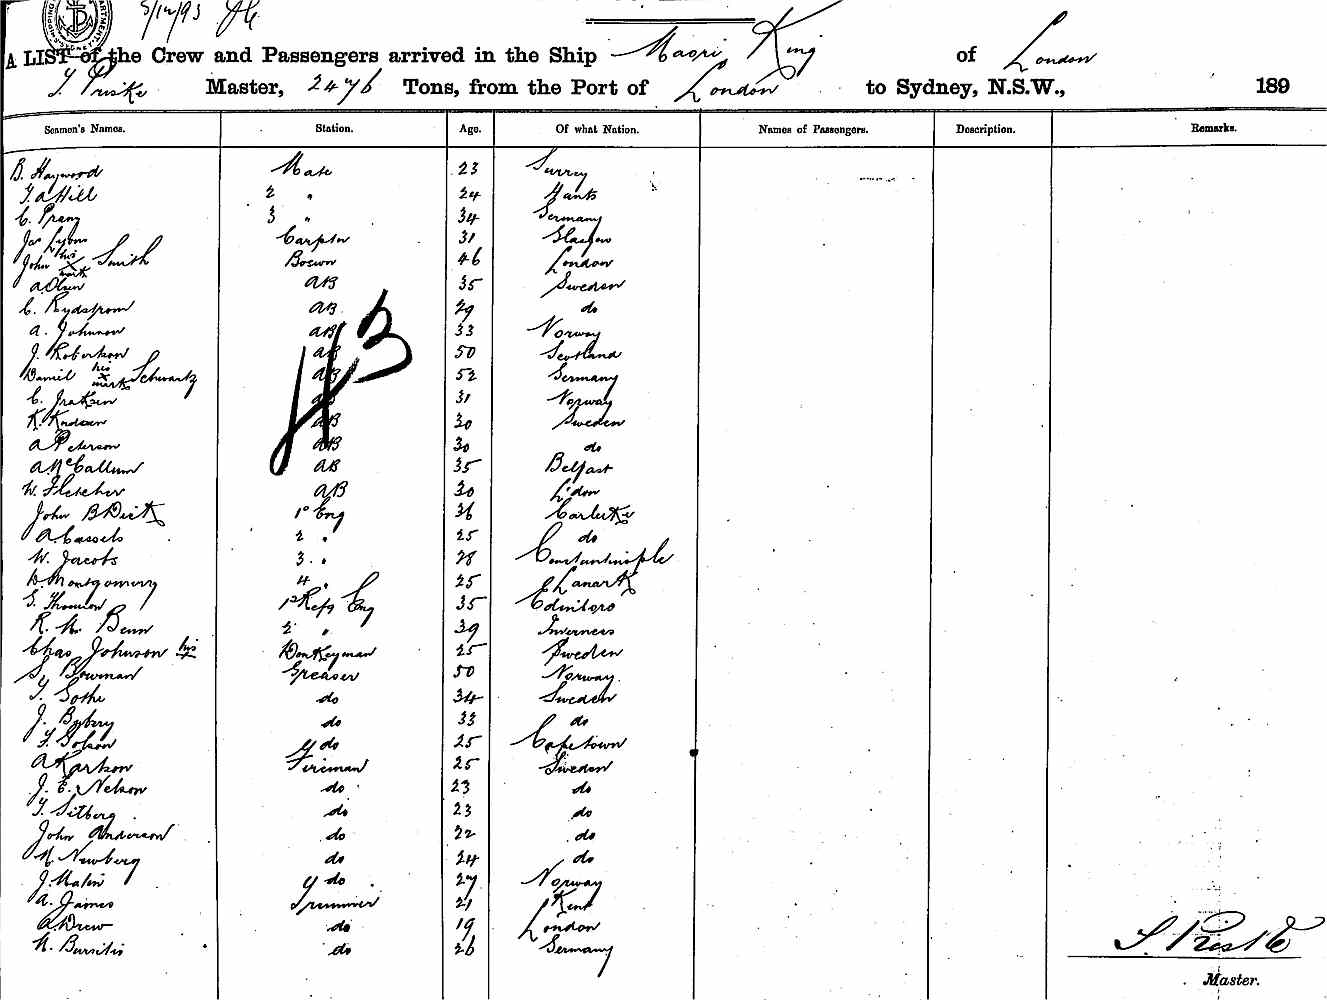 5/12/93
A LIST of the Crew and Passengers arrived in the Ship Maori King of London
Master, 2476 Tons, from the Port of London to Sydney, N.S.W., 189
Seamen's Names. Station. Age. Of what Nation. Names of Passengers. Description. Remarks.
B. Haywood Mate 23 Surrey
Hill 2 " 24 Hants
C. 3 " 34 Germany
Jas Lyons Carpter 31 Glasgow
John his X mark Smith Boswn 46 London
A Olsen AB 35 Sweden
C. Rydstrom AB 29 do
A. Johnson AB 33 Norway
J. Robertson AB 50 Scotland
Daniel his x mark Schwartz AB 52 Germany
C. AB 31 Norway
K. Knudsen AB 30 Sweden
A Peterson AB 30 do
A McCallum AB 35 Belfast
W. Fletcher AB 30 L'don
H3
John B Dick 1º Eng 36 Carluke
A Cassels 2 " 25 do
W. Jacobs 3 " 28 Constantinople
D. Montgomery 4 " 25 Lanark
Thomson 1º Refg Eng 35 Edinboro
R. M. Benn 2 " 39 Inverness
Chas Johnson his x Donkeyman 25 Sweden
S. Bowman Greaser 50 Norway.
Sothe do 34 Sweden
J. do 33 do
do 25 Capetown
A Karlson Fireman 25 Sweden
J. E. Nelson do 23 do
Silberg do 23 do
John Anderson do 22 do
Newberg do 24 do
J. Malin do 27 Norway
A. James Trimmer 21 Kent
A Drew do 19 London
do 26 Germany
Master.